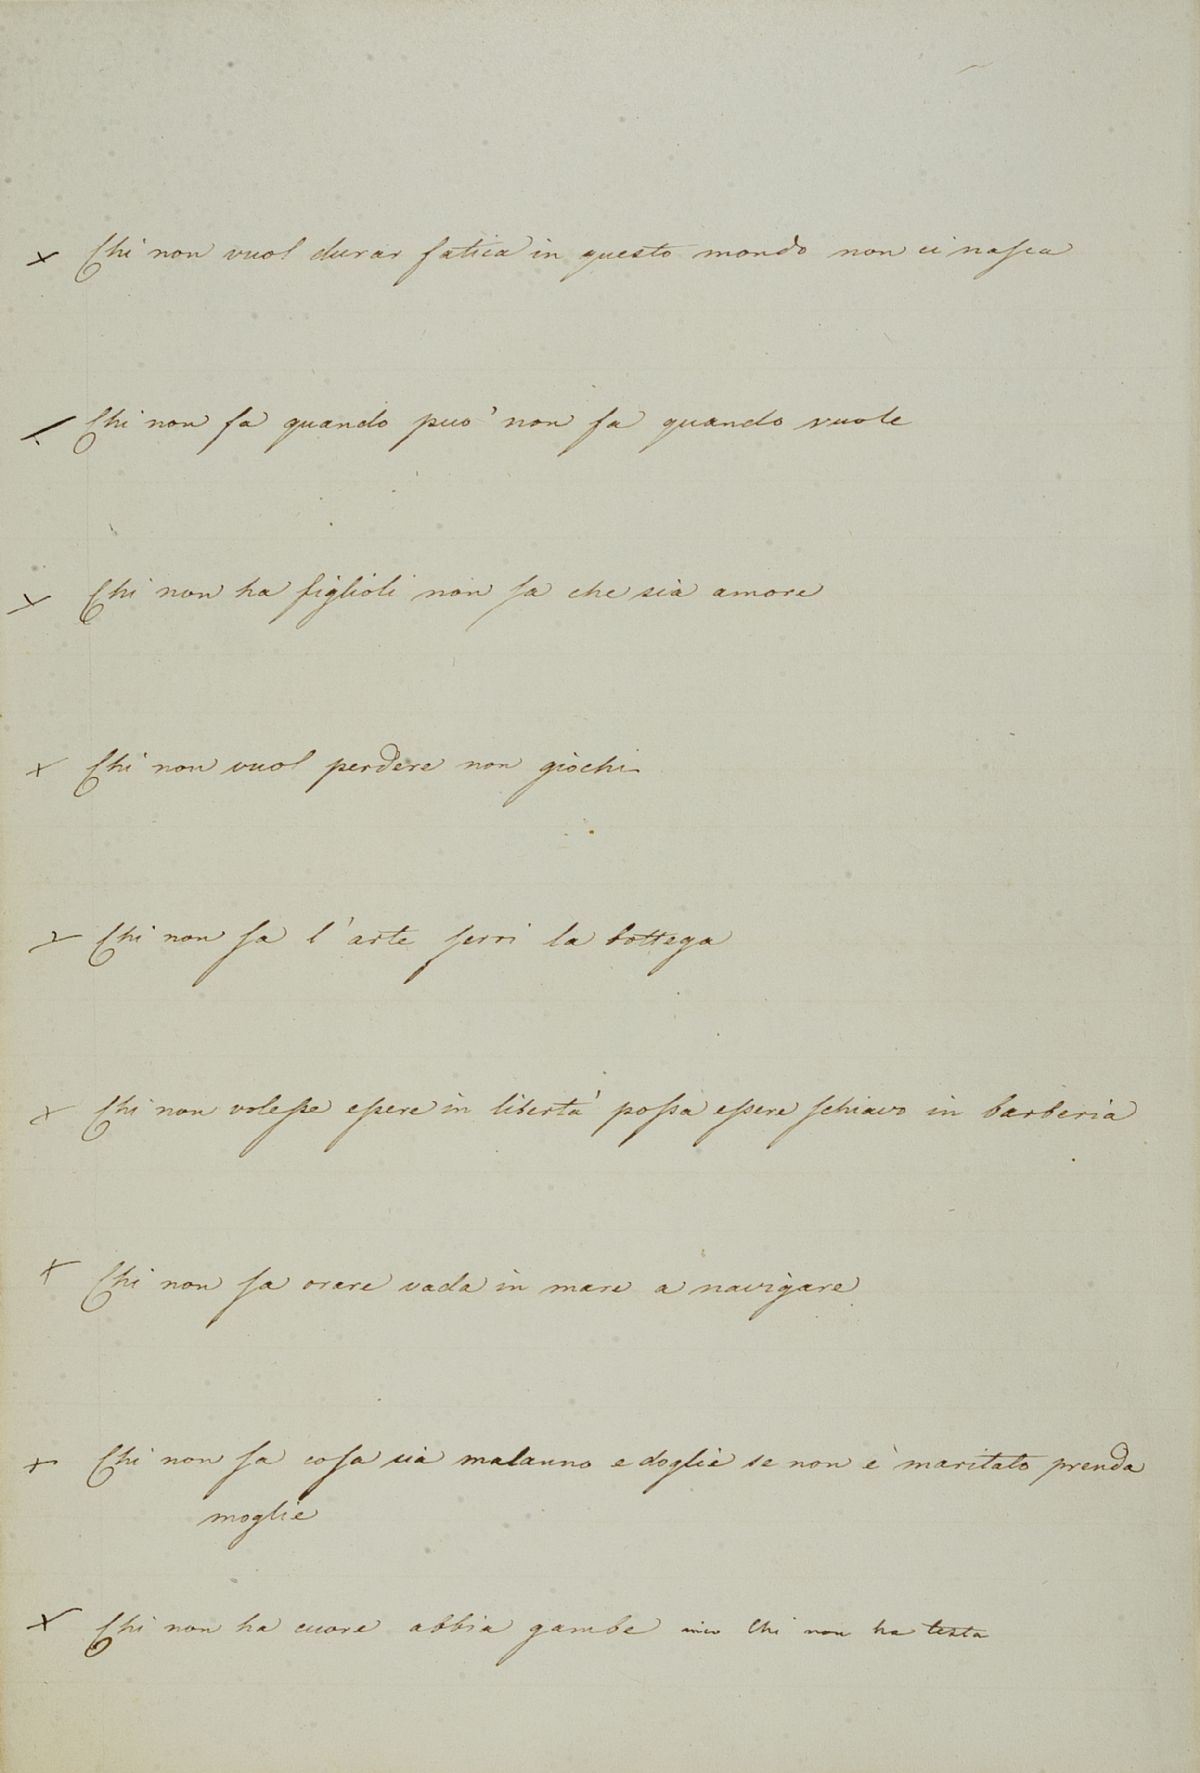 Chi non vuol durar fatica in questo mondo non ci nasca
Chi non fa quando può non fa quando vuole
Chi non ha figlioli non sa che sia amore
Chi non vuol perdere non giochi
Chi non sa l'arte serri la bottega
Chi non volesse essere in libertà possa essere schiavo in barberia
Chi non sa orare vada in mare a navigare
Chi non sa cosa sia malanno e doglie se non è maritato prenda
moglie
Chi non ha cuore abbia gambe Chi non ha testa